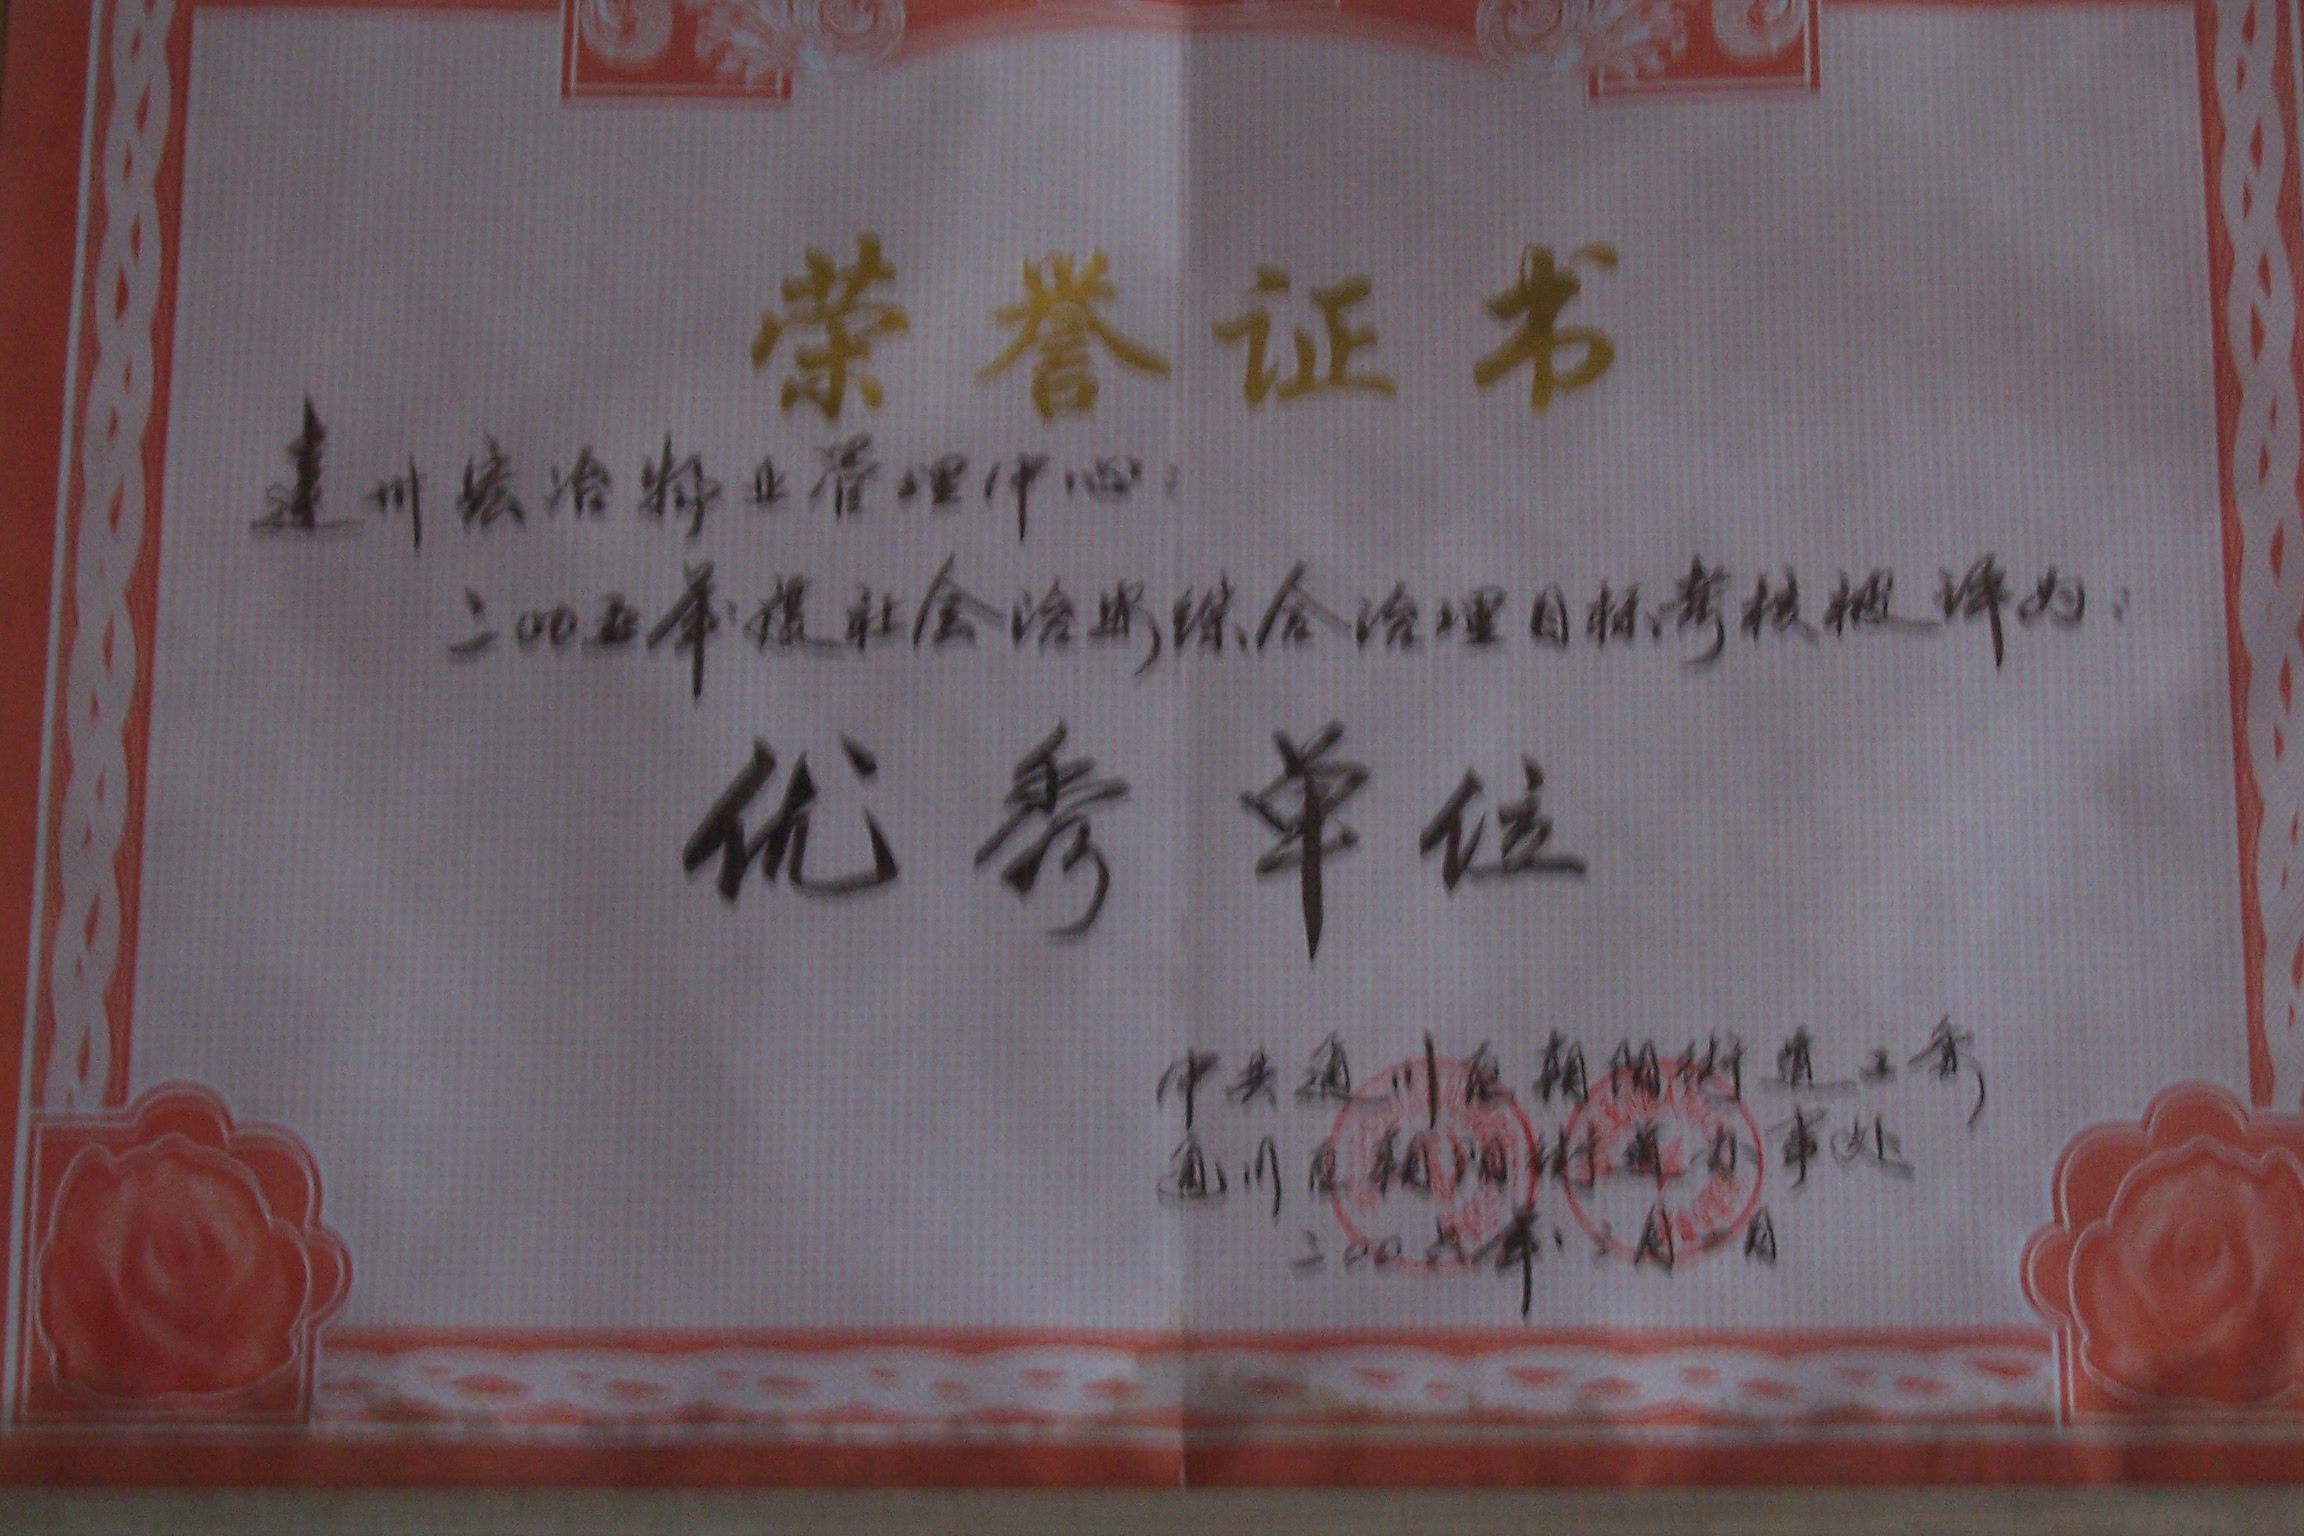 荣誉证书
达州宏冶物业管理中心:
二00五年度社会治安综合治理目标考核被评为:
优秀单位
中共通川区朝阳街道工委
通川区朝阳街道办事处
二00六年二月二日